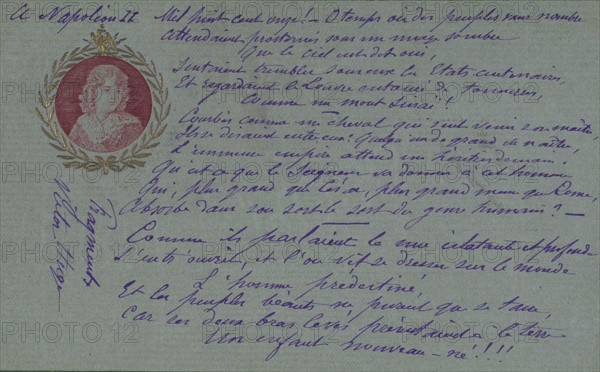 A Napoléon II
Mil huit cent onze ! – O temps où des peuples sans nombre
Attendaient prosternés sous un nuage sombre
Que le ciel eut dit oui,
Sentaient trembler sous eux les Etats centenaires,
Et regardaient le Louvre entouré de tonnerres,
Comme un mont Sinaï !
Courbés comme un cheval qui sent venir son maître,
Ils se disaient entre eux : Quelqu'un de grand va naître,
L'immense empire attend un héritier demain.
Qu'est-ce que le Seigneur va donner à cet homme
Qui, plus grand que César, plus grand même que Rome,
Absorbe dans son sort le sort du genre humain ? –
Comme ils parlaient la nue éclatante et profonde
S'entr'ouvrit et l'on vit se dresser sur le monde
L'homme prédestiné,
Et les peuples béants ne purent que se taire,
Car ses deux bras levés présentaient à la terre
Un enfant nouveau-né !!!!
Fragments
Victor Hugo
PHOTO 12